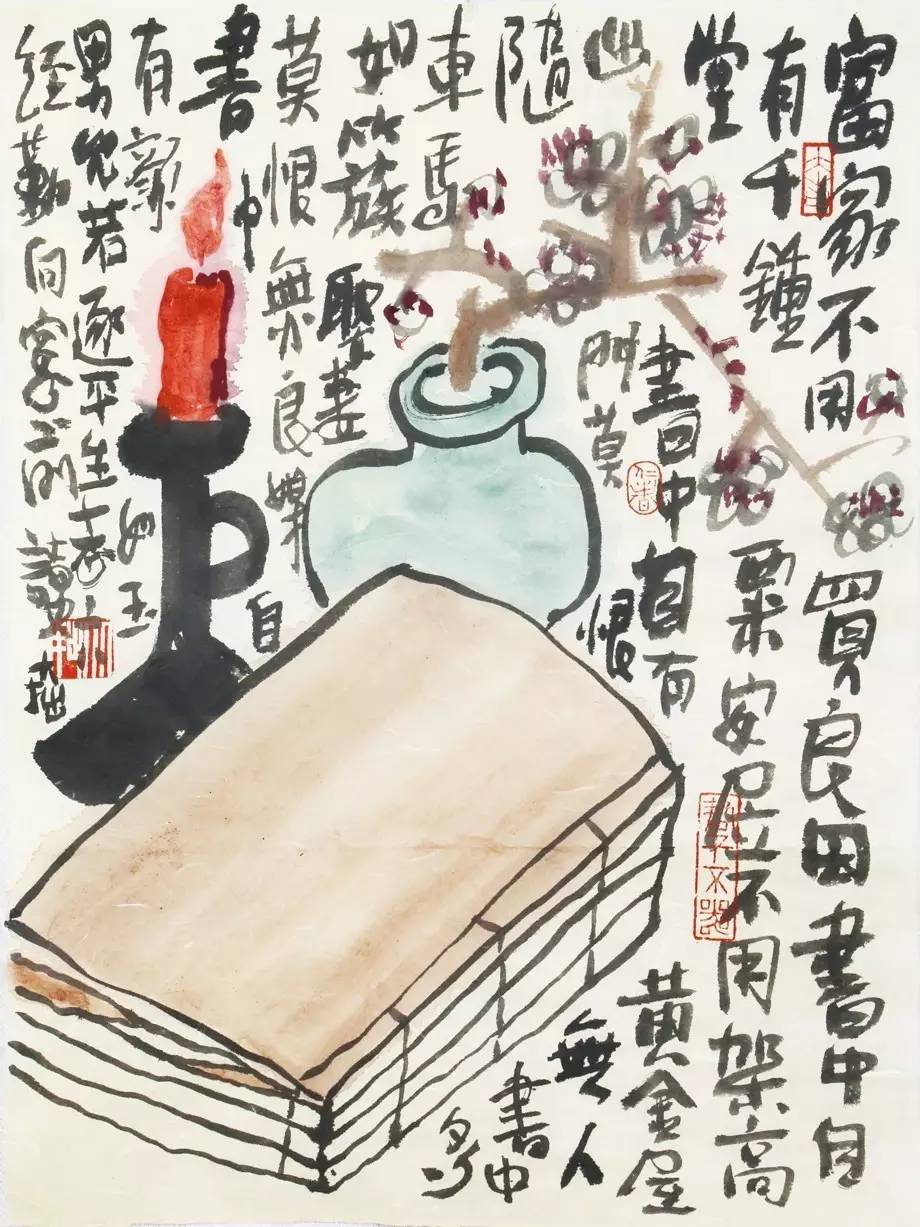 富家不用買良田書中自
有千鍾粟安居不用架高
堂書中自有黃金屋
出門莫恨無人
隨書中
車馬多
如簇娶妻
莫恨無良媒自
書中
有顏如玉
男兒若遂平生志六
經勤向窗前讀大拙